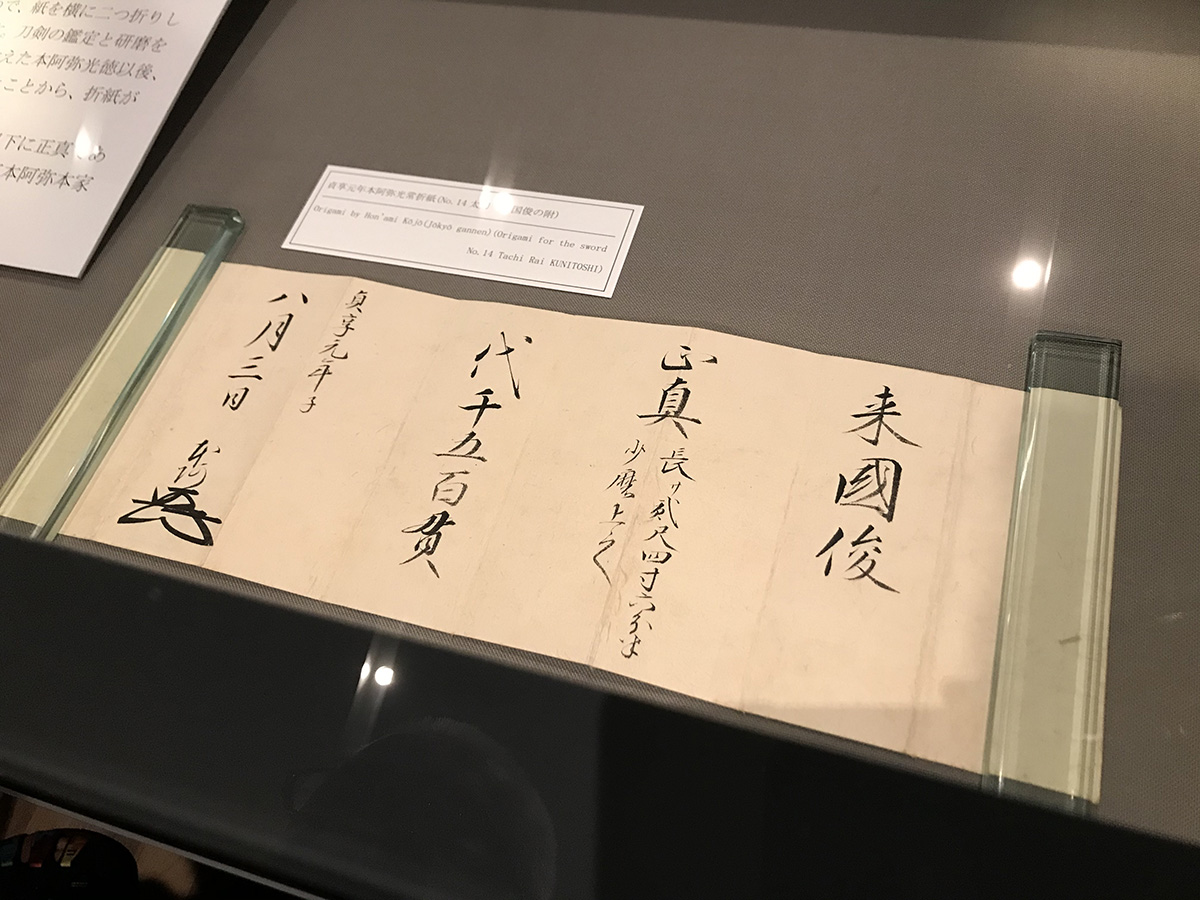 で、紙を横に二つ折りし
刀剣の鑑定と研磨を
えた本阿弥光徳以後、
ことから、折紙が
下に正真
本阿弥本家
貞享元年本阿弥光常折紙(No.14 太 国俊の附)
Origami by Hon'ami Kōjō(Jōkyō gannen)(Origami for the sword
No.14 Tachi Rai KUNITOSHI)
来國俊
正真
長サ貳尺四寸六分半
少磨上
代千五百貫
貞享元年子
八月三日
本阿